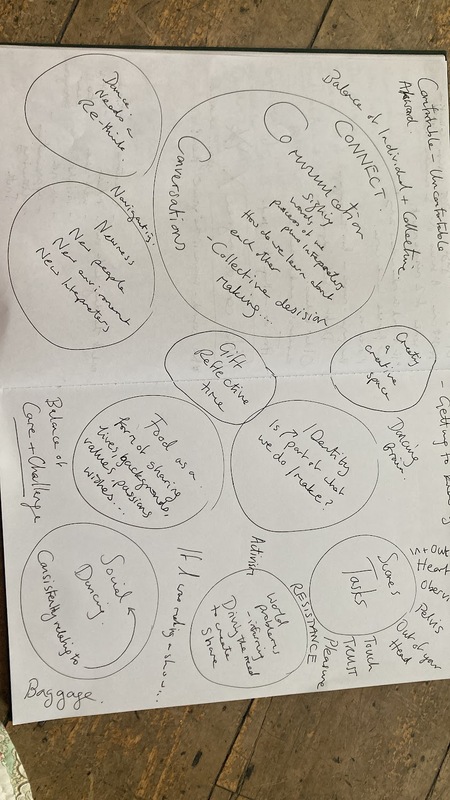 Comfortable - Uncomfortable
Awkward
Balance of Individual + Collective
CONNECT.
Communication
Signing
words of we
plus interpreters
How do we learn about
each other
- Collective decision
making....
Conversations
Dance is
Needs a
Re-think.
Navigating
Newness
New people
New environment
New Interpreters
Creating
a
creative
space
Gift
Reflective
time
Dancing
Brain.
- Getting to
Identity
Is it part of what
we do/make?
Food as a
form of sharing
lives, backgrounds,
values, passions
wishes...
Balance of
Care + Challenge
Scores
Tasks
In + Out
Heart
Pelvis
Out of your
Head
Touch
TRUST
Pleasure
RESISTANCE
Activism
World
problems
- informing
Driving the need
to create
+ share
If I was making a show...
Social
Dancing.
Consistently relating to
Baggage.